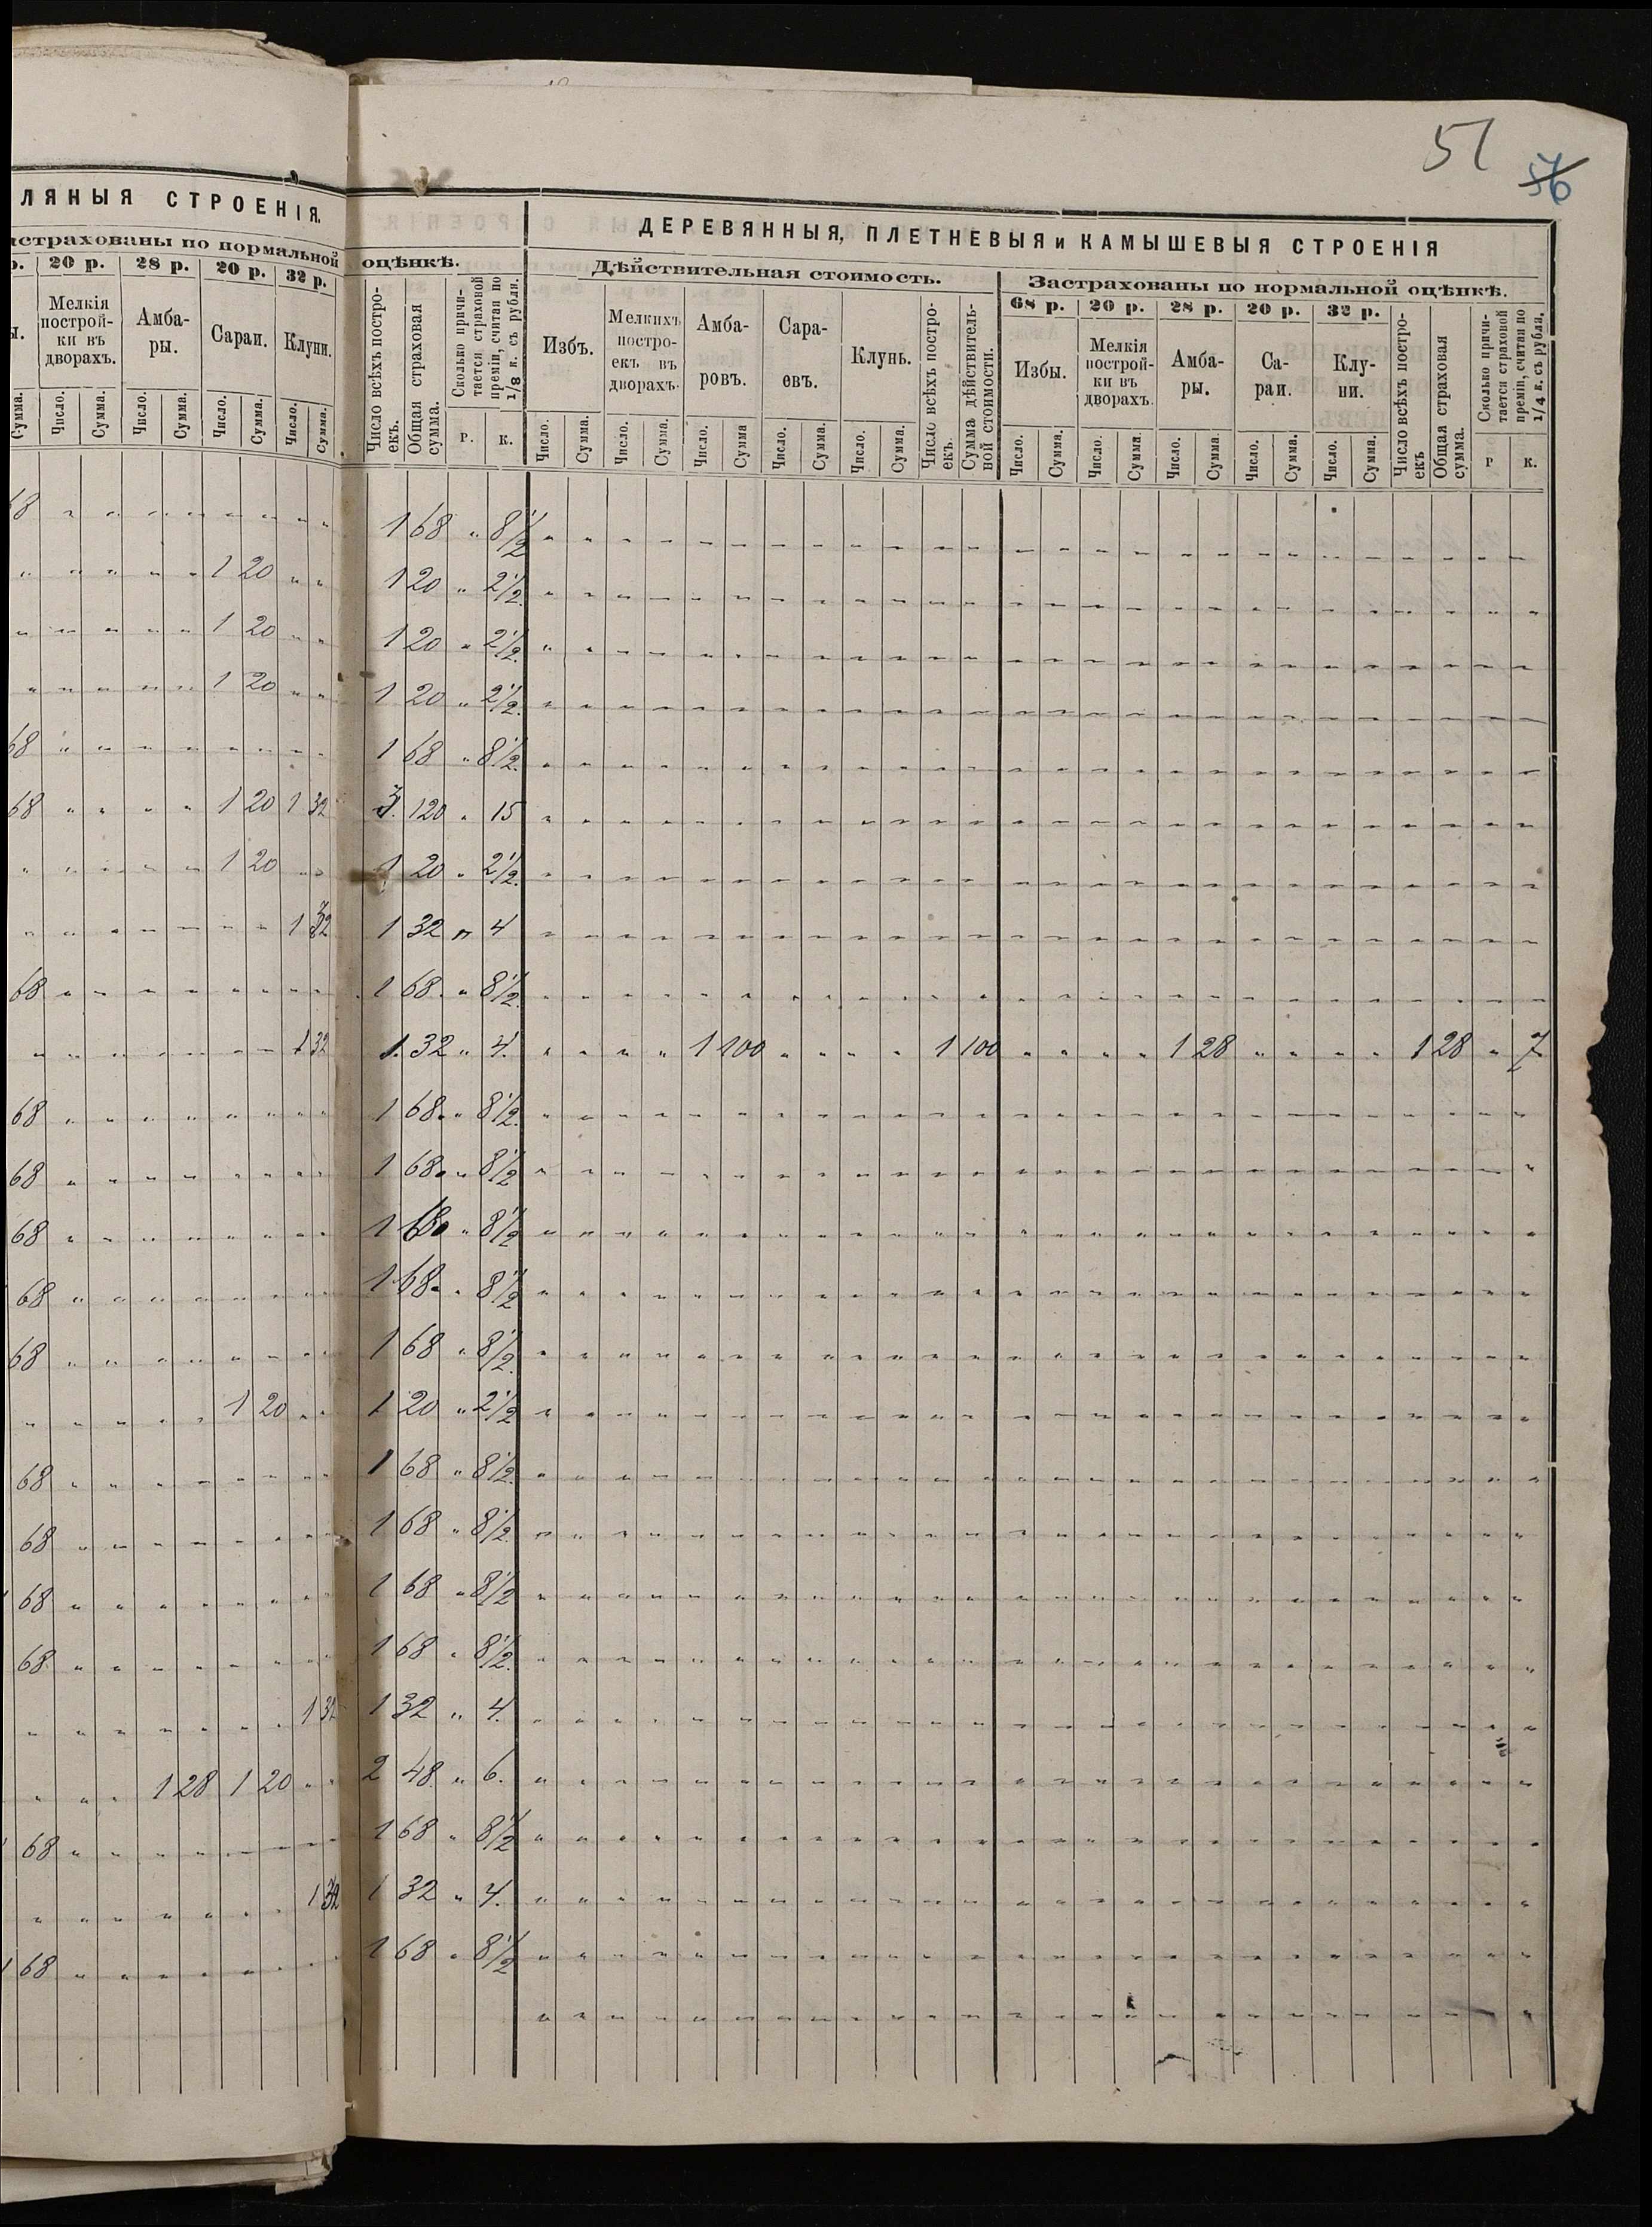 51
56
ЛЯНЫЯ СТРОЕНІЯ.
ДЕРЕВЯННЫЯ, ПЛЕТНЕВЫЯ и КАМЫШЕВЫЯ СТРОЕНІЯ
астрахованы по нормальной оцѣнкѣ.
Дѣйствительная стоимость.
Застрахованы по нормальной оцѣнкѣ.
р. 20 р. 28 р. 20 р. 32 р.
68 р. 20 р. 28 р. 20 р. 32 р.
Мелкія построй-ки въ дворахъ.
Амба-ры.
Сараи.
Клуни.
Число всѣхъ постро-екъ.
Общая страховая сумма.
Сколько причи-тается страховой преміи, считая по 1/8 к. съ рубля.
Избъ.
Мелкихъ постро-екъ въ дворахъ.
Амба-ровъ.
Сара-евъ.
Клунь.
Число всѣхъ постро-екъ.
Сумма дѣйствитель-ной стоимости.
Избы.
Мелкія построй-ки въ дворахъ.
Амба-ры.
Са-раи.
Клу-ни.
Число всѣхъ постро-екъ
Общая страховая сумма.
Сколько причи-тается страховой преміи, считая по 1/4 к. съ рубля.
Сумма. Число. Сумма. Число. Сумма. Число. Сумма. Число. Сумма. Р. К. Число. Сумма. Число. Сумма. Число. Сумма Число. Сумма. Число. Сумма. Число. Сумма. Число. Сумма. Число. Сумма. Число. Сумма. Число. Сумма. Р К.
68 1 68 " 8 1/2
1 20 1 20 " 2 1/2.
1 20 1 20 " 2 1/2.
1 20 1 20 " 2 1/2.
68 1 68 " 8 1/2.
68 1 20 1 32 3. 120 " 15
1 20 1 20 " 2 1/2.
1 32 1 32 " 4
68 1 68 " 8 1/2.
1 32 1. 32 " 4. 1 100 1 100 1 28 1 28 " 7
68 1 68 " 8 1/2.
68 1 68 " 8 1/2
68 1 68 " 8 1/2
68 1 68 " 8 1/2
68 1 68 " 8 1/2.
1 20 1 20 " 2 1/2
68 1 68 " 8 1/2.
68 1 68 " 8 1/2
68 1 68 " 8 1/2
68 1 68 " 8 1/2.
1 32 1 32 " 4.
1 28 1 20 2 48 " 6.
68 1 68 " 8 1/2
1 32 1 32 " 4.
1 68 1 68 " 8 1/2